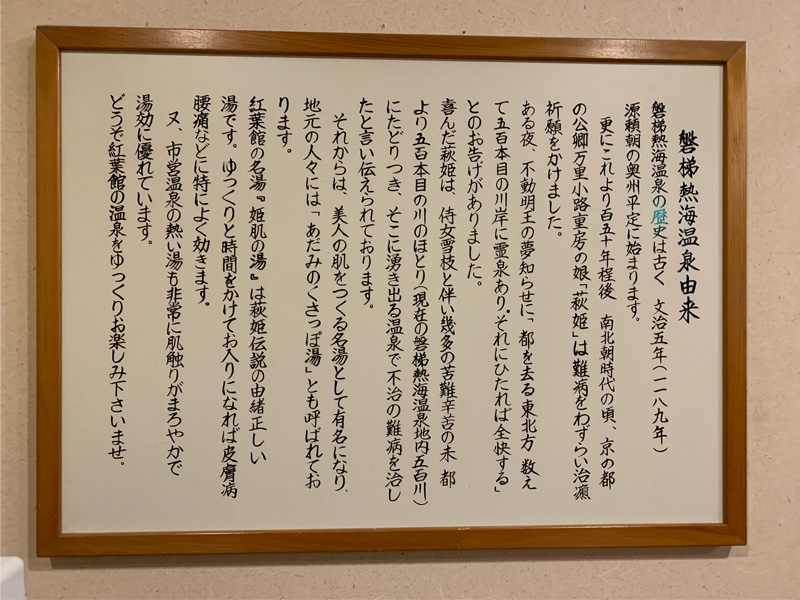 磐梯熱海温泉由来
磐梯熱海温泉の歴史は古く　文治五年(一一八九年)
源頼朝の奥州平定に始まります。
更にこれより百五十年程後　南北朝時代の頃、京の都
の公卿万里小路重房の娘「萩姫」は難病をわずらい治癒
祈願をかけました。
ある夜、不動明王の夢知らせに「都を去る東北方　数え
て五百本目の川岸に霊泉あり。それにひたれば全快する」
とのお告げがありました。
喜んだ萩姫は、侍女雪枝と伴い幾多の苦難辛苦の末　都
より五百本目の川のほとり(現在の磐梯熱海温泉地内五百川)
にたどりつき、そこに湧き出る温泉で不治の難病を治し
たと言い伝えられております。
それからは、美人の肌をつくる名湯として有名になり、
地元の人々には「あだみのくさっぽ湯」とも呼ばれてお
ります。
紅葉館の名湯『姫肌の湯』は萩姫伝説の由緒正しい
湯です。ゆっくりと時間をかけてお入りになれば皮膚病
腰痛などに特によく効きます。
又、市営温泉の熱い湯も非常に肌触りがまろやかで
湯効に優れています。
どうぞ紅葉館の温泉をゆっくりお楽しみ下さいませ。